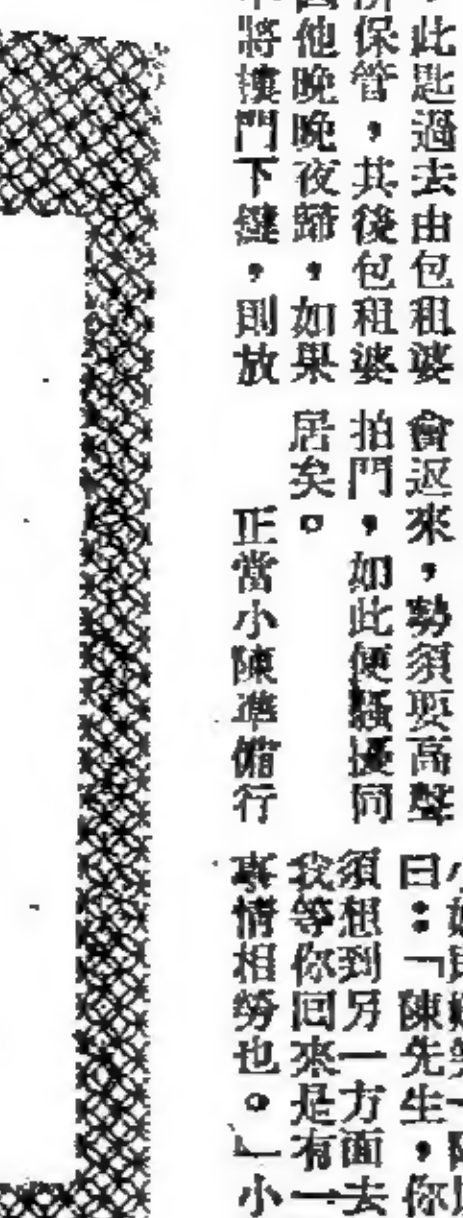 此匙過去由包租婆
保管，其後包租婆
他晚晚夜歸，如果
將樓門下鍵，則放
會返來，勢須要高聲
拍門，如此便騷擾同
居矣。
正當小陳準備行
曰：「陳先生，你
須想到另一方面去
我等你回來是有一
事情相勞也。」小